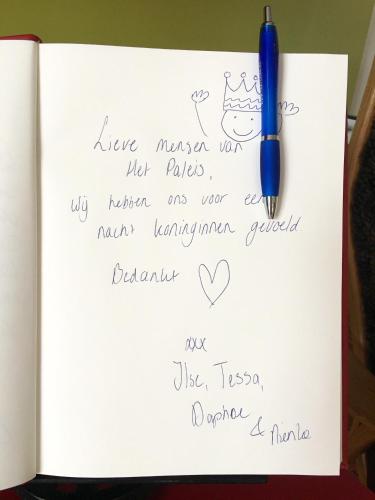 Lieve mensen van
Het Paleis,
Wij hebben ons voor een
nacht koninginnen gevoeld
Bedankt
xxx
Ilse, Tessa,
Daphne
& Nienke